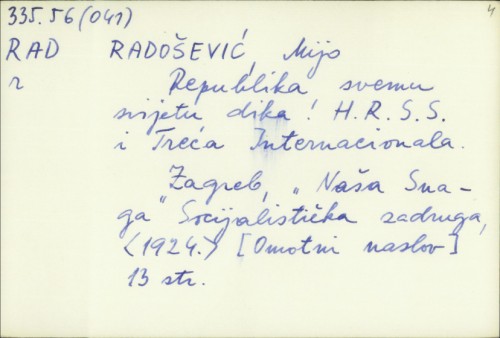 335.56(041) 4
RAD RADOŠEVIĆ, Mijo
r Republika svemu
svijetu dika! H.R.S.S.
i Treća Internacionala.
Zagreb, „Naša Sna-
ga" Socijalistička zadruga,
<1924.> [Omotni naslov]
13 str.